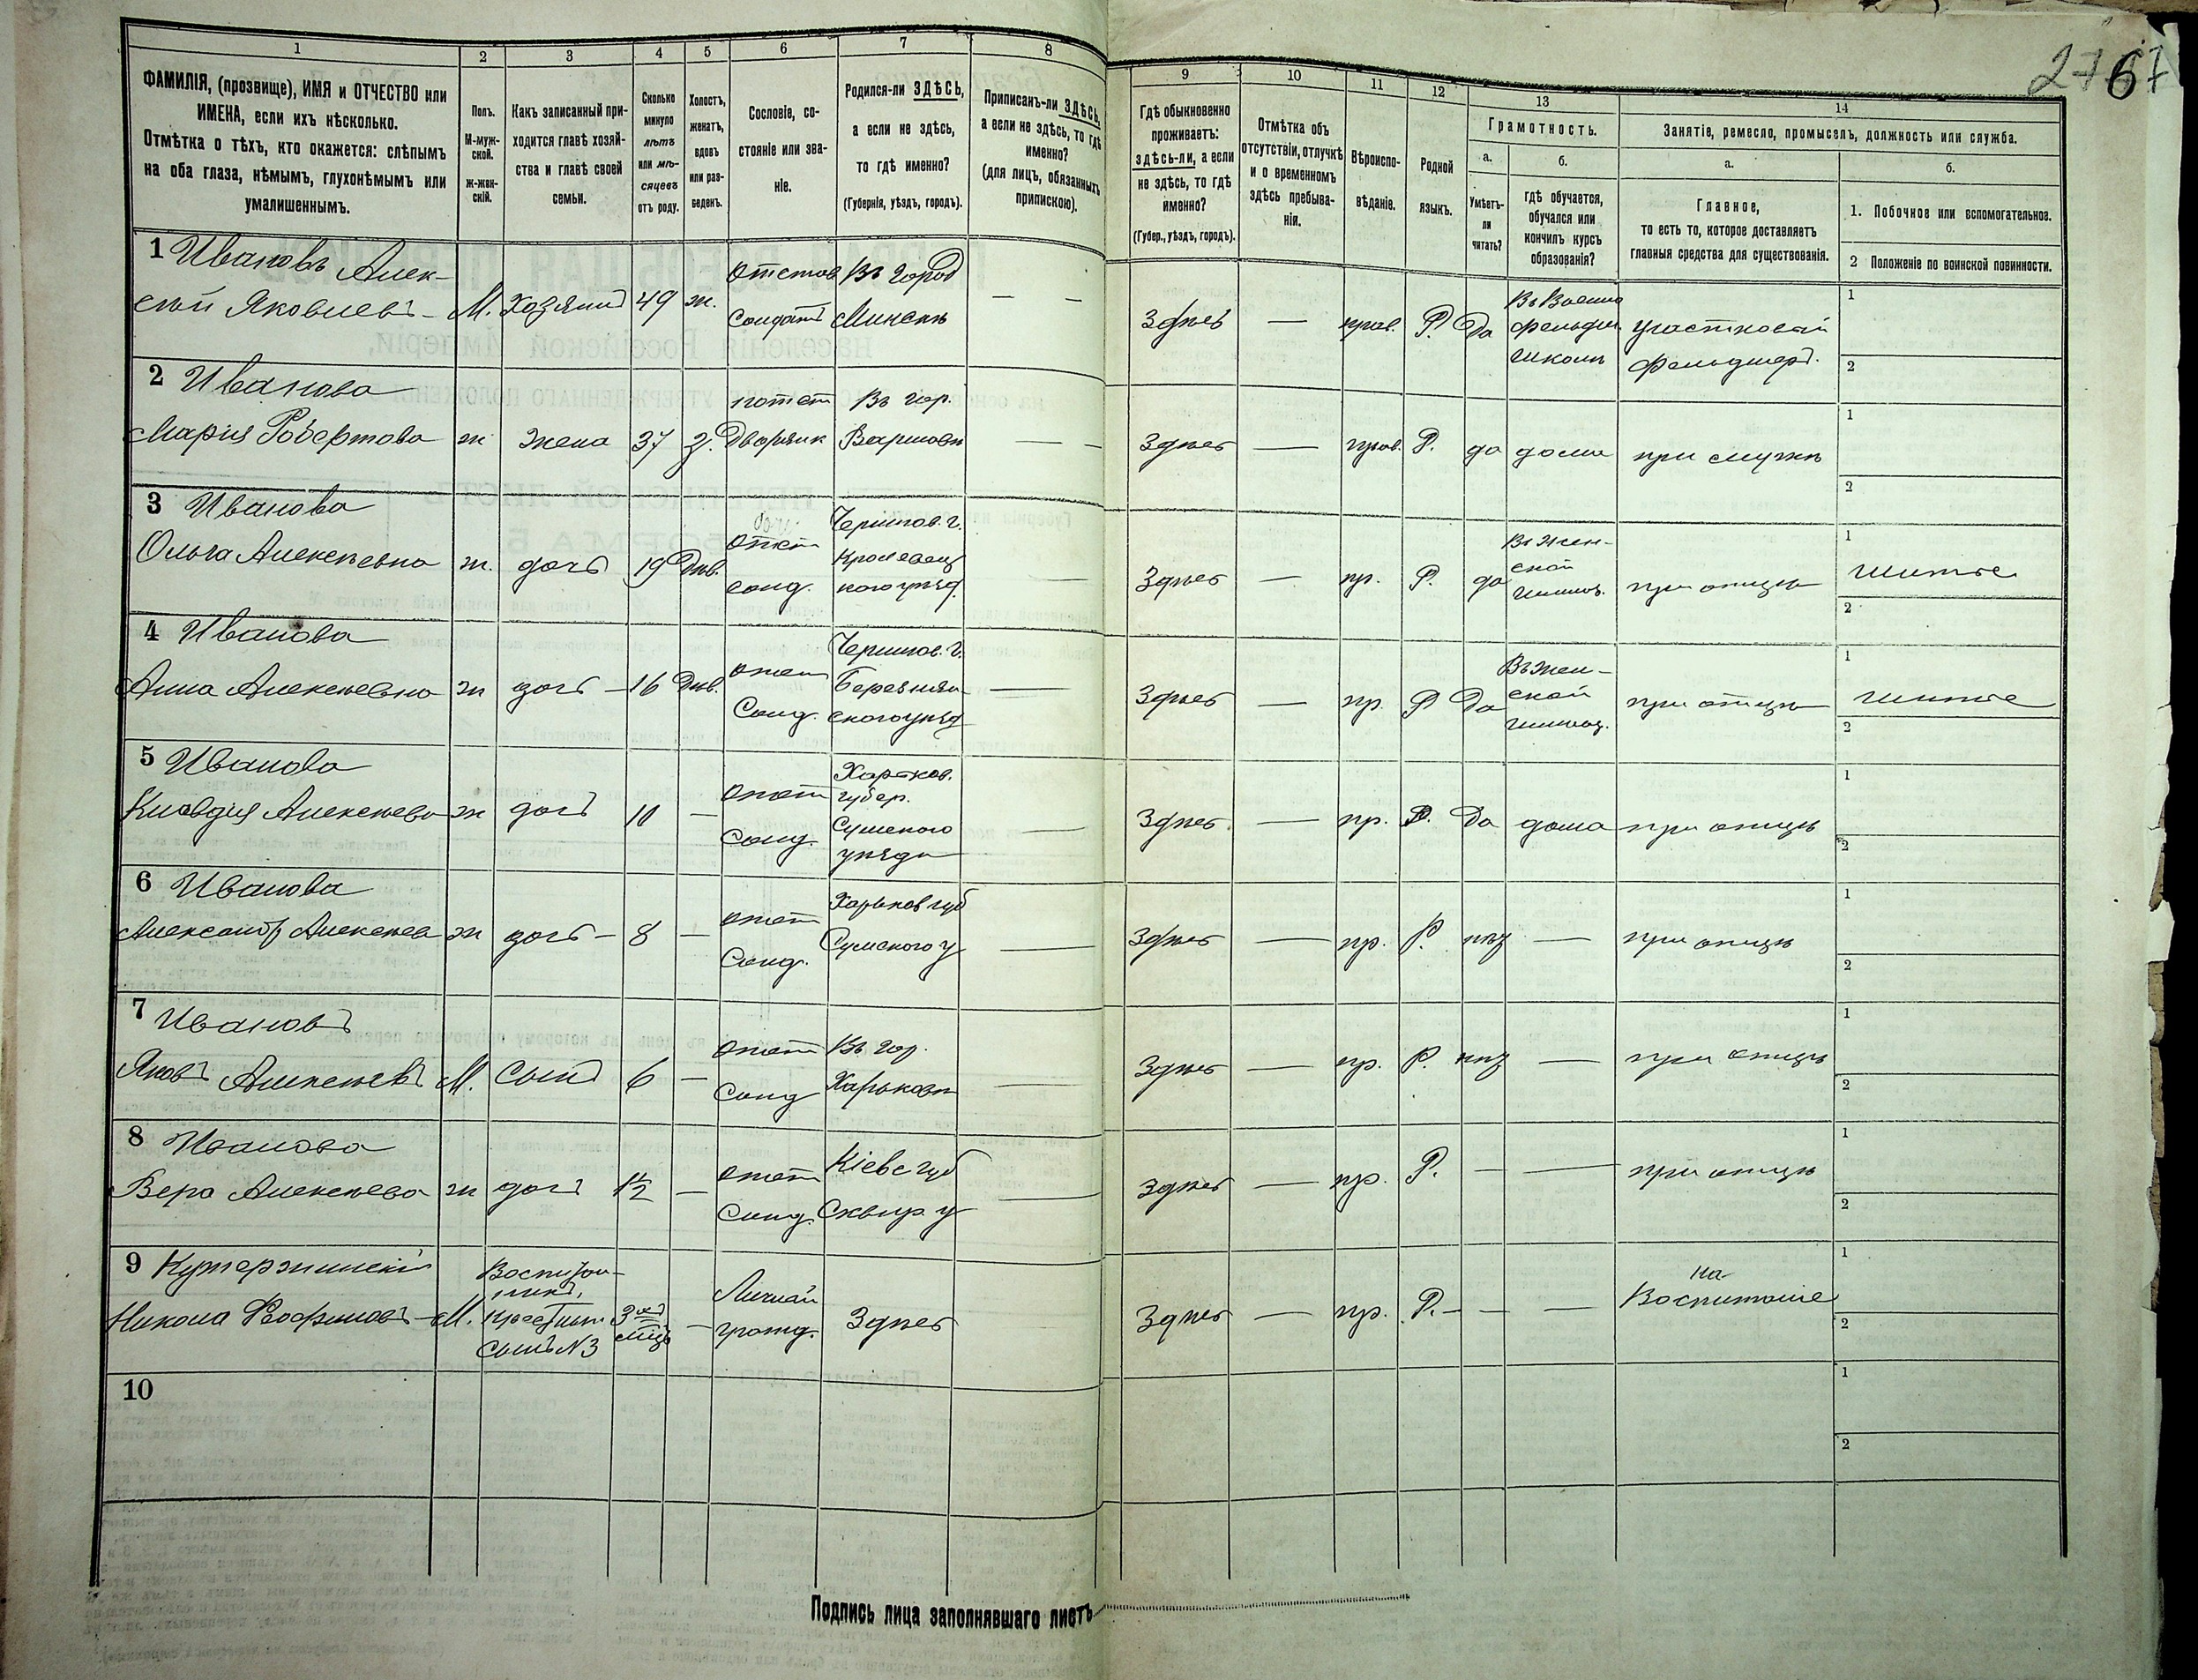 2767
1
2
3
4
5
6
7
8
9
10
11
12
13
14
ФАМИЛІЯ, (прозвище), ИМЯ и ОТЧЕСТВО или
ИМЕНА, если ихъ нѣсколько.
Отмѣтка о тѣхъ, кто окажется: слѣпымъ
на оба глаза, нѣмымъ, глухонѣмымъ или
умалишеннымъ.
Полъ.
М-муж-
ской.
ж-жен-
скій.
Какъ записанный при-
ходится главѣ хозяй-
ства и главѣ своей
семьи.
Сколько
минуло
лѣтъ
или мѣ-
сяцевъ
отъ роду.
Холостъ,
женатъ,
вдовъ
или раз-
веденъ.
Сословіе, со-
стояніе или зва-
ніе.
Родился-ли ЗДѢСЬ,
а если не здѣсь,
то гдѣ именно?
(Губернія, уѣздъ, городъ).
Приписанъ-ли ЗДѢСЬ,
а если не здѣсь, то гдѣ
именно?
(для лицъ, обязанныхъ
припискою).
Гдѣ обыкновенно
проживаетъ:
здѣсь-ли, а если
не здѣсь, то гдѣ
именно?
(Губер., уѣздъ, городъ).
Отмѣтка объ
отсутствіи, отлучкѣ
и о временномъ
здѣсь пребыва-
ніи.
Вѣроиспо-
вѣданіе.
Родной
языкъ.
Грамотность.
а.
Умѣетъ-
ли
читать?
б.
гдѣ обучается,
обучался или
кончилъ курсъ
образованія?
Занятіе, ремесло, промыселъ, должность или служба.
а.
Главное,
то есть то, которое доставляетъ
главныя средства для существованія.
б.
1. Побочное или вспомогательное.
2 Положеніе по воинской повинности.
1 Ивановъ Алек-
сѣй Яковлевъ
М.
Хозяинъ
49
ж.
Отстав
Солдатъ
Въ город
Минскѣ
— —
Здѣсь
—
прав.
Р.
Да
Въ Военно
фельдш.
школѣ
участковый
фельдшеръ.
1
2
2 Иванова
Марія Робертова
ж
жена
37
з.
потом
Дворянк
Въ гор.
Варшавѣ
— —
Здѣсь
—
прав.
Р.
да
дома
при мужѣ
1
2
3 Иванова
Ольга Алексѣевна
ж.
дочь
19
Дѣв.
Отст
солд.
Чернигов. г.
Кролевец
кого уѣзд.
—
Здѣсь
—
пр.
Р.
да
Въ жен-
ской
гимназ.
при отцѣ
1
Шитье
2
4 Иванова
Анна Алексѣевна
ж
дочь
16
Дѣв.
отст
Солд.
Чернигов. г.
Березнян-
ского уѣзд
—
Здѣсь
—
пр.
Р
Да
Въ жен-
ской
гимназ.
при отцѣ
1
Шитье
2
5 Иванова
Клавдія Алексѣева
ж
дочь
10
—
отст
Солд.
Харьков.
губер.
Сумского
уѣзда
—
Здѣсь
—
пр.
Р.
Да
дома
при отцѣ
1
2
6 Иванова
Александр Алексѣев
ж
дочь
8
—
отст
Солд.
Харьков губ
Сумского у
—
Здѣсь
—
пр.
Р.
нѣт
—
при отцѣ
1
2
7 Ивановъ
Яковъ Алексѣевъ
М.
Сынъ
6
—
отст
Солд
Въ гор.
Харьковѣ
—
Здѣсь
—
пр.
Р.
нѣт
—
при отцѣ
1
2
8 Иванова
Вера Алексѣева
ж
дочь
1½
—
отст
Солд.
Кіевс губ
Сквир. у
—
здѣсь
—
пр.
Р.
—
—
при отцѣ
1
2
9 Кутержинскій
Никола
М.
Воспитан-
никъ,
крестьян.
Сынъ №3
3хъ
мцъ
—
Личный
гражд.
Здѣсь
Здѣсь
—
пр.
Р.
—
—
На
Воспитаніе
1
2
10
1
2
Подпись лица заполнявшаго листъ